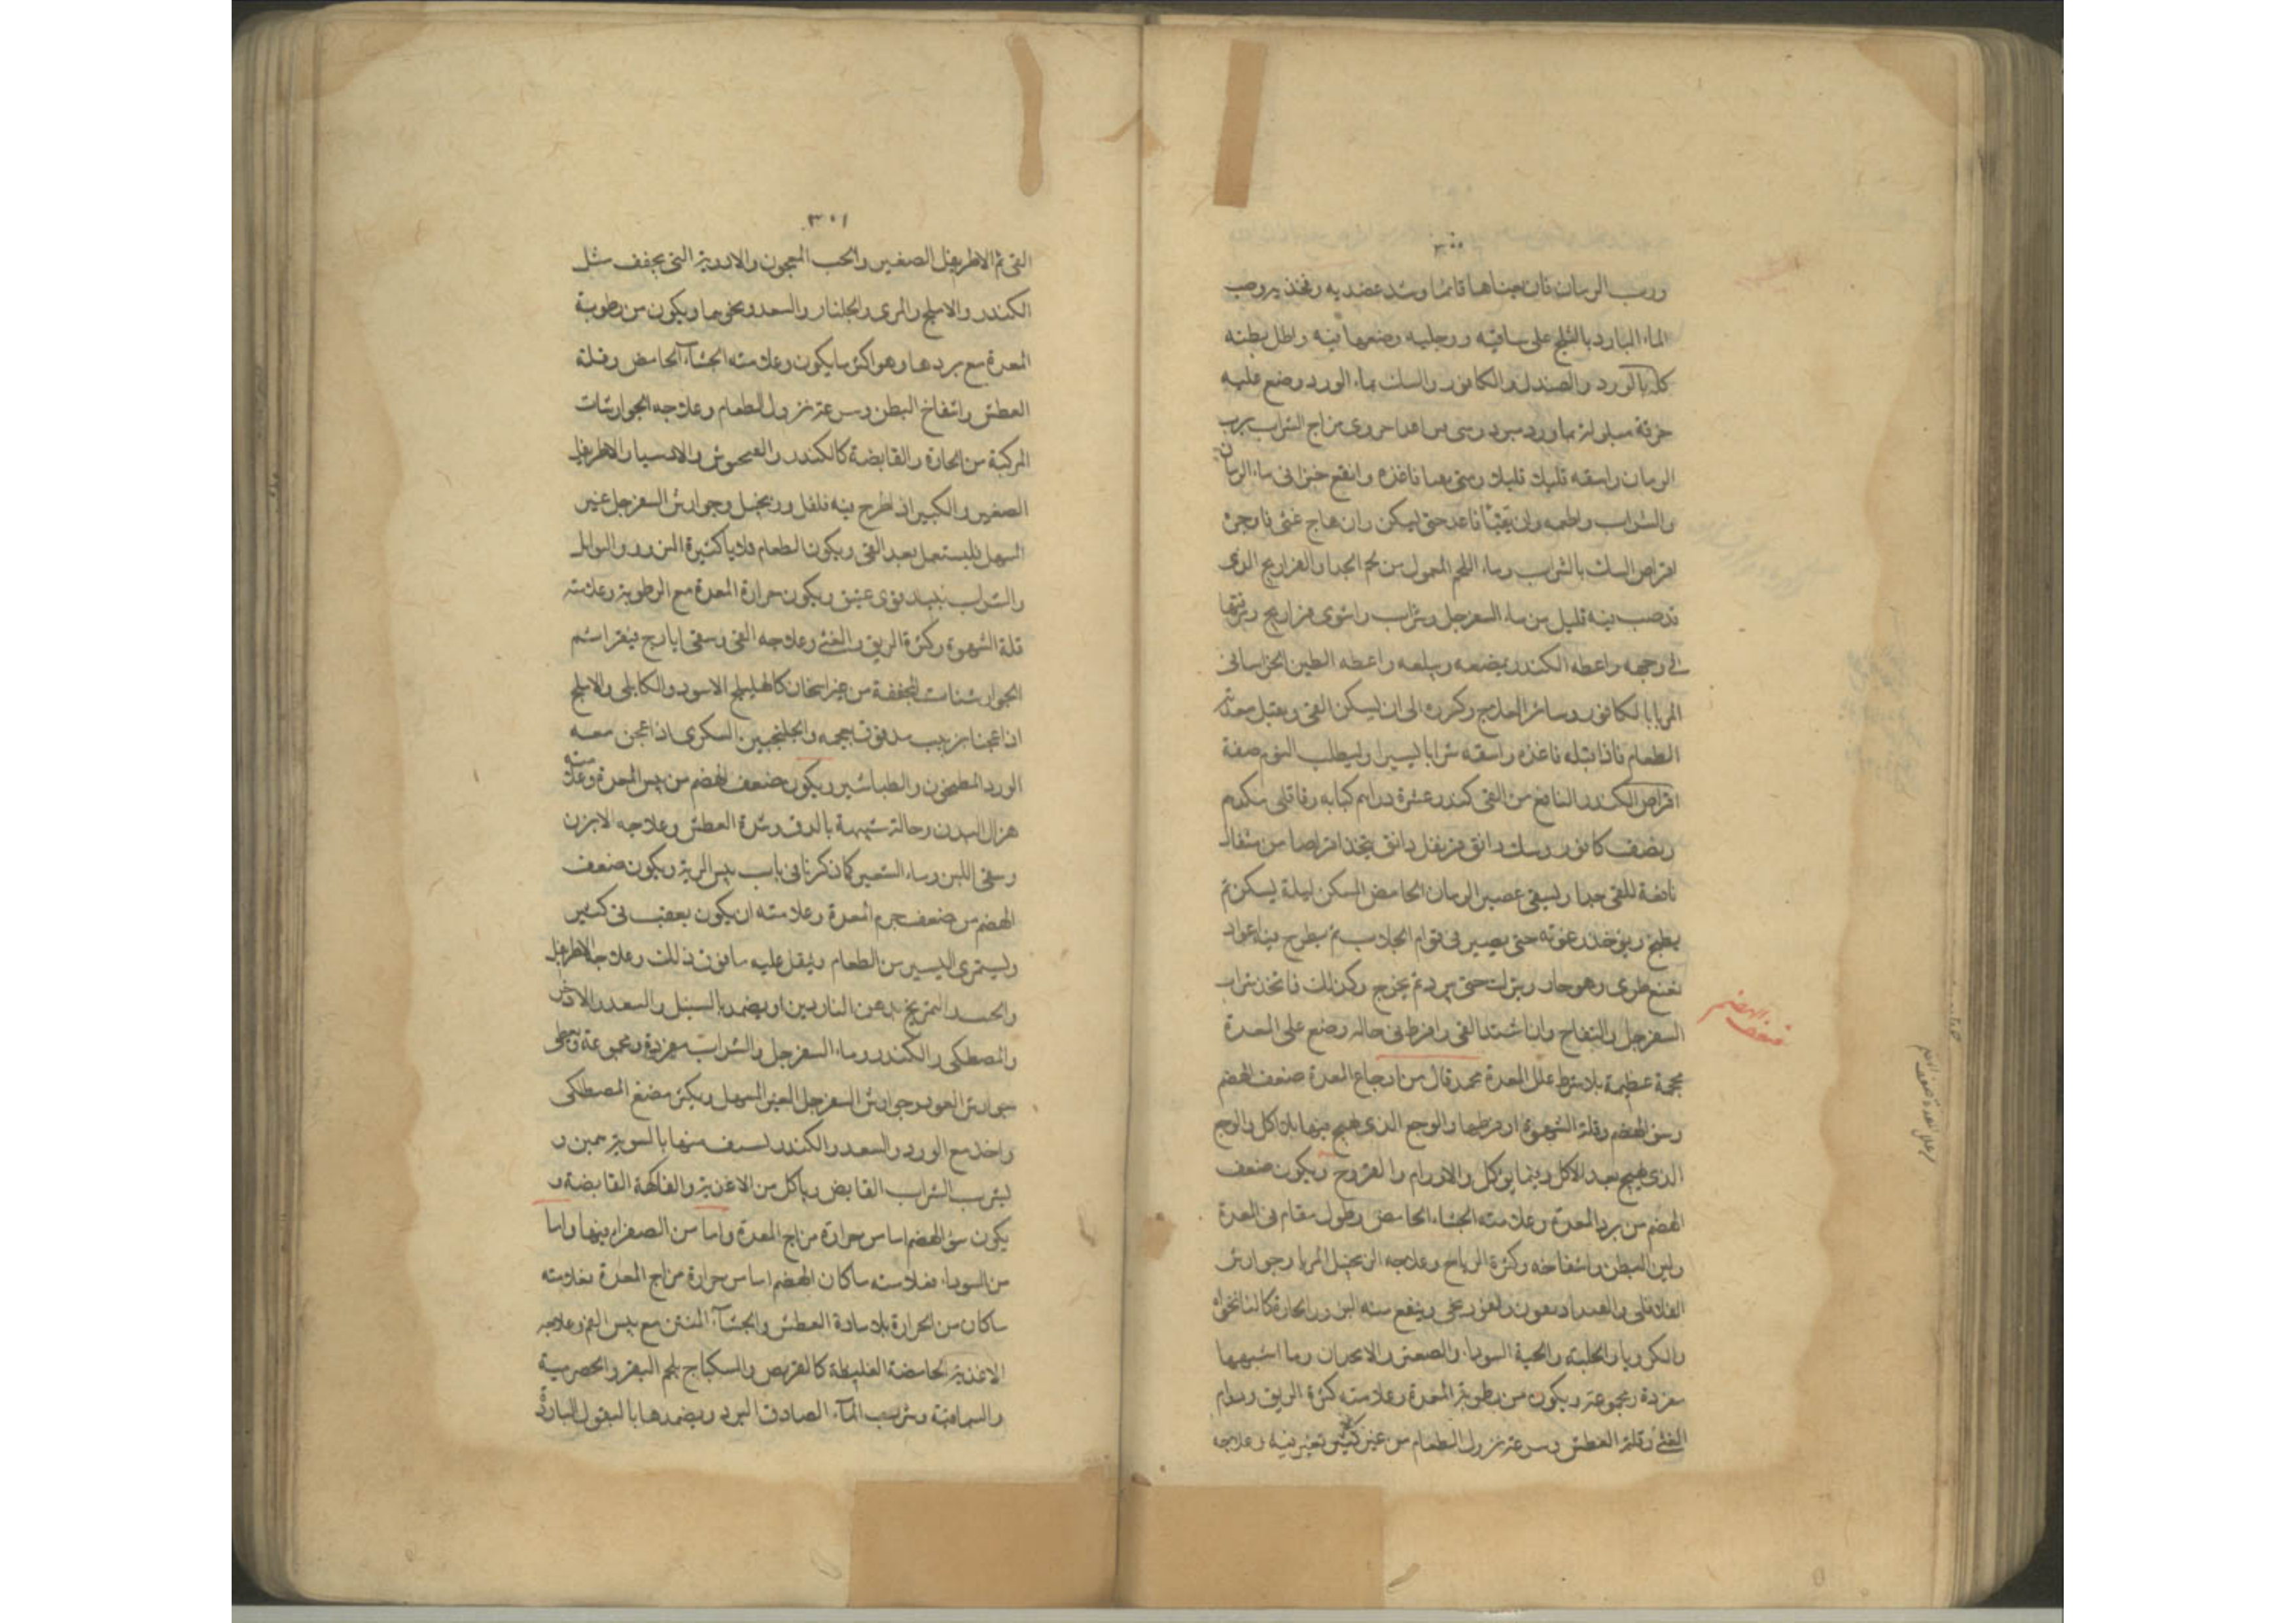 ٣٠٠
ورب الرمان فان هيناها قائما وشد عضديه وفخذيه وصب
الماء البارد بالثلج على ساقيه ورجليه وضعهما فيه واطل بطنه
كله بالورد والصندل والكافور والسك بماء الورد وضع عليه
خرقة مبلولة بماورد مبرد وسى من اقداحروى مزاج الشراب برب
الرمان واسقه قليلا قليلا ومتى فاغذه وانقع خبزا فى ماء الرمان
والشراب واطعمه وان تقيأ فاعد حتى يسكن وان هاج غثى
اقراص السك بالشراب وماء اللحم المعمول من لحم الجدا والفراريج الذى
قد صب فيه قليل من ماء السفرجل وشراب واشوى فراريج
الى وجهه واعطه الكندر يمضغه ويبلعه واعطه الطين الخراسانى
المربا بالكافور وسائر العلاج وكرره الى ان يسكن القى ويقبل معدته
الطعام فاذا قبله فاغذه واسقه شرابا يسيرا وليطلب النوم صفة
اقراص الكندر النافع من القى كندر عشرة دراهم كبابه وقاقلى
ونصف كافور وسك دانق قرنفل دانق يتخذ اقراصا من مثقال
نافعة للقى جدا ويسقى عصير الرمان الحامض المسكن ليلة ليسكن ثم
يطبخ ويؤخذ رغوته حتى يصير فى قوام الجلاب ثم يطرح فيه اعواد
نعنع طرى وهو حار ويترك حتى يبرد ثم يخرج وكذلك فاتخذ شراب
السفرجل والتفاح واذا اشتد القى وافرط فى حاله وضع على المعدة
محجمة عظيمة بلا شرط علل المعدة محمد قال من اوجاع المعدة ضعف الهضم
وسؤ الهضم وقلة الشهوة او فرطها والوجع الذى يهيج منها بلا اكل والوجع
الذى يهيج بعد الاكل وفيما يوكل والاورام والقروح ويكون ضعف
الهضم من برد المعدة وعلامته الجشاء الحامض وطول مقام فى المعدة
ولين البطن وانتفاخه وكثرة الرياح وعلاجه الزنجبيل المربا وجوارش
الفلافلى وينفع منه البزور الحارة كالنانخواه
والكرويا والحلبة والحبة السوداء والصعتر والانجدان وما اشبهها
مفردة ومجموعة ويكون من رطوبة المعدة وعلامته كثرة الريق ودوام
الغثى وقلة العطش وسرعة نزول الطعام من غير كثير تغير فيه وعلاجه
ضعف الهضم
٣٠١
القى ثم الاطريفل الصغير والحب المعجون والادوية التى يجفف مثل
الكندر والاملج والمرى والجلنار والسعد ونحوها ويكون من رطوبة
المعدة مع بردها وهو اكثر ما يكون وعلامته الجشاء الحامض وقلة
العطش وانتفاخ البطن وسرعة نزول الطعام وعلاجه الجوارشات
المركبة من الحارة والقابضة كالكندر والاطريفل
الصغير والكبير اذا طرح فيه فلفل وزنجبيل وجوارش السفرجل غير
المسهل فليستعمل بعد القى ويكون الطعام قلايا كثيرة البزور والتوابل
والشراب نبيذ قوى عتيق ويكون حرارة المعدة مع الرطوبة وعلامته
قلة الشهوة وكثرة الريق والغثى وعلاجه القى وسقى ايارج فيقرا ثم
الجوارشنات المجففة من غير اسخان كالهليلج الاسود والكابلى والاملج
اذا عجنا بزبيب مدقوق بعجمه والجلنجبين السكرى اذا عجن معه
الورد المطحون والطباشير ويكون ضعف الهضم من يبس المعدة وعلامته
هزال البدن وحالة شبيهة بالدق وشدة العطش وعلاجه الابزن
وسقى اللبن وماء الشعير كما ذكرنا فى باب يبس الرية ويكون ضعف
الهضم من ضعف جرم المعدة وعلامته ان يكون بعقب قى كثير
ويستمرى اليسير من الطعام ويثقل عليه ما فوق ذلك وعلاجه الاطريفل
بالسنبل والسعد والاذخر
والمصطكى والكندر وماء السفرجل والشراب مفردة ومجموعة ويعطى
جوارش العود وجوارش السفرجل الغير المسهل ويكثر مضغ المصطكى
واخذ مع الورد والسعد والكندر يستف منها بالسوية درهمين و
يشرب الشراب القابض وياكل من الاغذية والفاكهة القابضة و
يكون سؤ الهضم اما من حرارة مزاج المعدة واما من الصفراء فيها واما
من السوداء فعلامته ما كان الهضم اما من حرارة مزاج المعدة فعلامته
ما كان من الحرارة بلا مادة العطش والجشاء المنتن مع يبس الفم وعلاجه
الاغذية الحامضة الغليظة كالقريص والسكباج بلحم البقر والحصرمية
والسماقية وشرب الماء الصادق البرد ويضمدها بالبقول الباردة